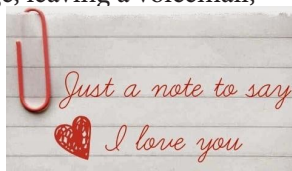 leaving a voicemail,
Just a note to say
I love you